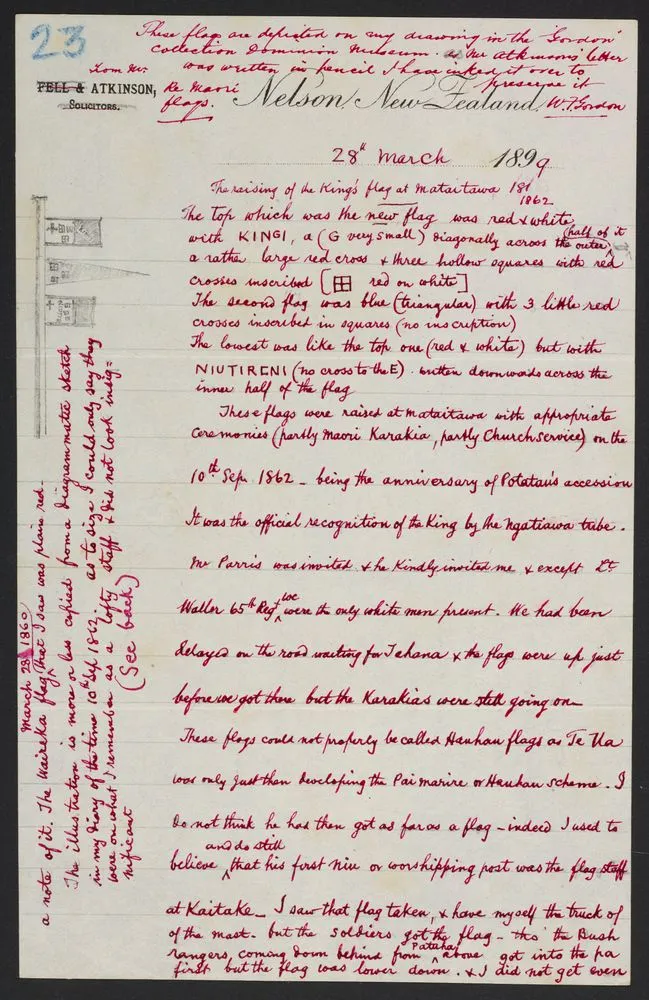 23
These flags are depicted on my drawing in the 'Gordon'
collection Dominion Museum. as Mr Atkinson's letter
was written in pencil I have inked it over to
preserve it
W.F. Gordon
From Mr.
FELL & ATKINSON,
SOLICITORS.
Re Maori
flags.
Nelson, New Zealand,
28th March 1899
The raising of the King's flag at Mataitawa 181
1862
The top which was the new flag was red & white
with KINGI, a (G very small) diagonally across the outer (half of it
a rather large red cross & three hollow squares with red
crosses inscribed [ red on white]
The second flag was blue (triangular) with 3 little red
crosses inscribed in squares (no inscription)
The lowest was like the top one (red & white) but with
NIUTIRENI (no cross to the E) written downwards across the
inner half of the flag
These flags were raised at Mataitawa with appropriate
ceremonies (partly Maori Karakia, partly Church service) on the
10th Sep. 1862 – being the anniversary of Potatau's accession
It was the official recognition of the King by the Ngatiawa tribe.
Mr Parris was invited & he kindly invited me & except Lt.
Waller 65th Regt we were the only white men present. We had been
delayed on the road waiting for Tahana & the flags were up just
before we got there but the Karakias were still going on –
These flags could not properly be called Hauhau flags as Te Ua
was only just then developing the Pai marire or Hauhau scheme. I
do not think he has then got as far as a flag – indeed I used to
and do still
believe that his first Niu or worshipping post was the flag staff
at Kaitake – I saw that flag taken, & have myself the truck of
of the mast. but the soldiers got the flag – tho' the Bush
rangers, coming down behind from Patuha above got into the pa
first but the flag was lower down. & I did not get even
a note of it. The Waireka flag (March 28th 1860) that I saw was plain red.
The illustration is more or less copied from a diagrammatic sketch
in my diary of the time 10th Sep 1862. as to size I could only say they
were on what I remember as a lofty staff & did not look insig=
nificant
(See back)